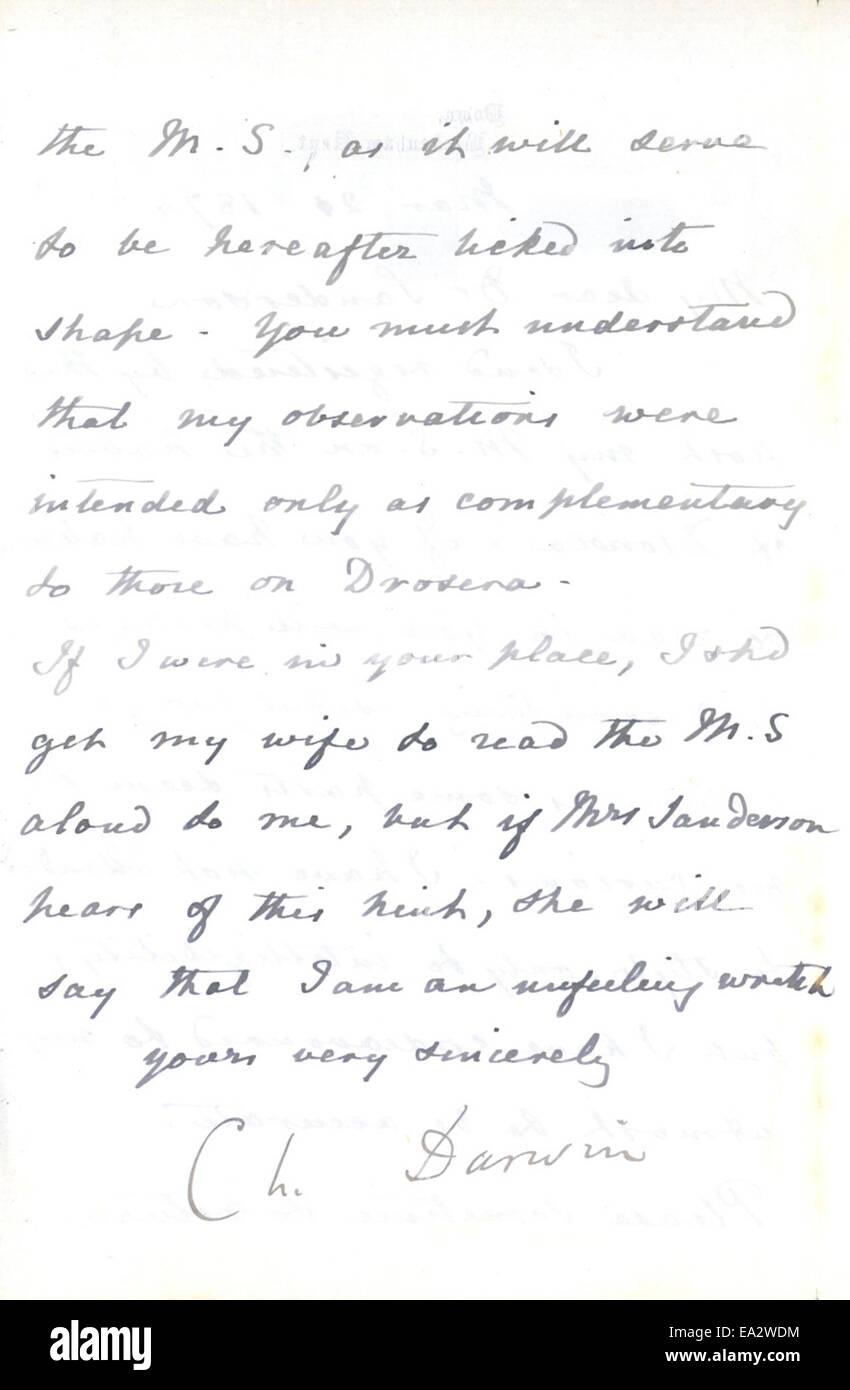 the M. S., as it will serve
to be hereafter licked into
shape - You must understand
that my observations were
intended only as complementary
to those on Drosera -
If I were in your place, I shd
get my wife to read the M. S
aloud to me, but if Mrs Sanderson
hears of this hint, she will
say that I am an unfeeling wretch
yours very sincerely
Ch. Darwin
alamy
Image ID: EA2WDM
www.alamy.com